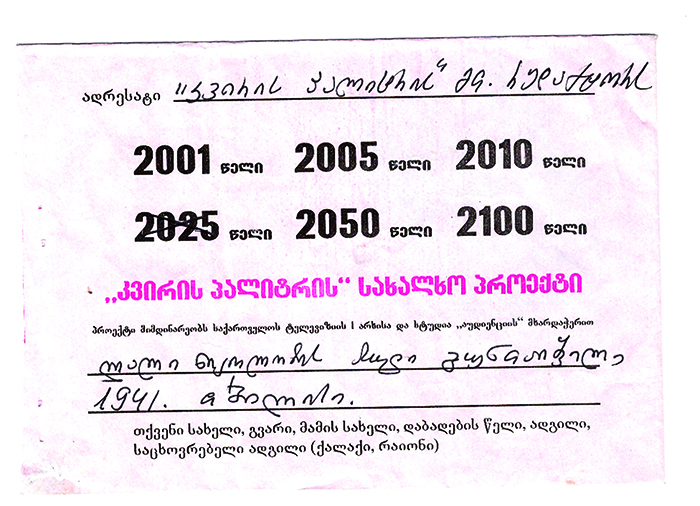 ადრესატი "კვირის პალიტრის" მთ. რედაქტორს
2001 წელი 2005 წელი 2010 წელი
2025 წელი 2050 წელი 2100 წელი
„კვირის პალიტრის“ სახალხო პროექტი
პროექტი მიმდინარეობს საქართველოს ტელევიზიის I არხისა და სტუდია „აუდიენციის“ მხარდაჭერით
ლალი ასული
1941. თბილისი.
თქვენი სახელი, გვარი, მამის სახელი, დაბადების წელი, ადგილი,
საცხოვრებელი ადგილი (ქალაქი, რაიონი)